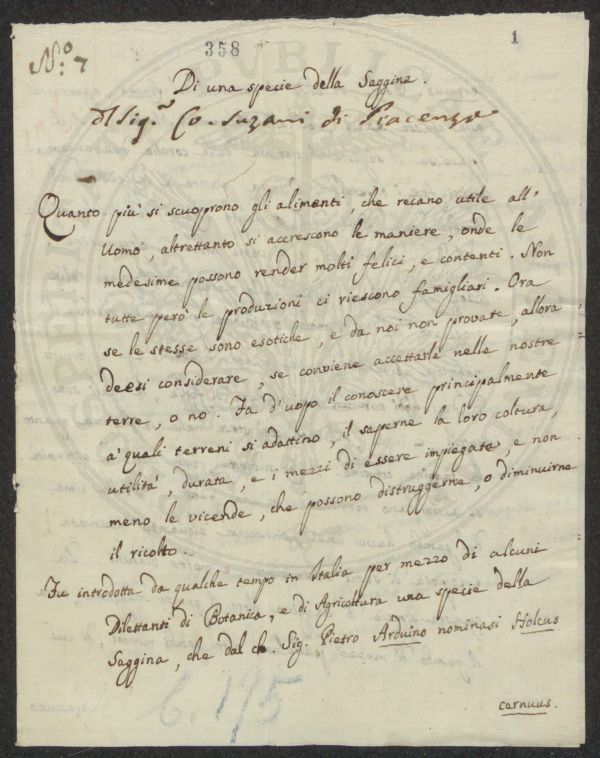 N.º 7
358
1
Di una specie della Saggina.
del Sig.r Co. Suzani di Piacenza
Quanto più si scuoprono gli alimenti, che recano utile all'
Uomo, altrettanto si accrescono le maniere, onde le
medesime possono render molti felici, e contenti. Non
tutte però le produzioni ci riescono famigliari. Ora
se le stesse sono esotiche, e da noi non provate, allora
deesi considerare, se conviene accettarle nelle nostre
terre, o no. Fa d'uopo il conoscere principalmente
a' quali terreni si adattino, il saperne la loro coltura,
utilità, durata, e i mezzi di essere impiegate, e non
meno le vicende, che possono distruggerne, o diminuirne
il ricolto.
Fu introdotta da qualche tempo in Italia per mezzo di alcuni
Dilettanti di Botanica, e di Agricoltura una specie della
Saggina, che dal ch. Sig. Pietro Arduino nominasi Holcus
cernuus.
6.175